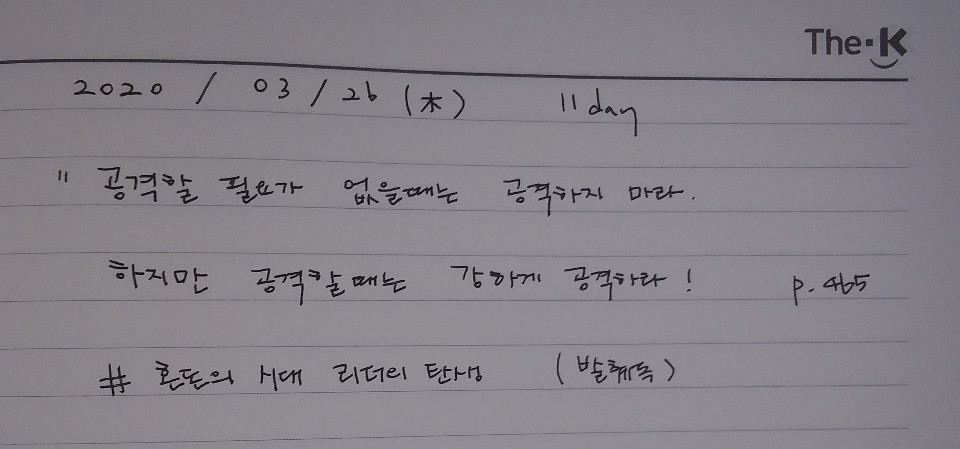 The·K
2020 / 03 / 26 (木) 11 day
" 공격할 필요가 없을때는 공격하지 마라.
하지만 공격할때는 강하게 공격하라! p. 465
# 혼돈의 시대 리더의 탄생 (발췌독)